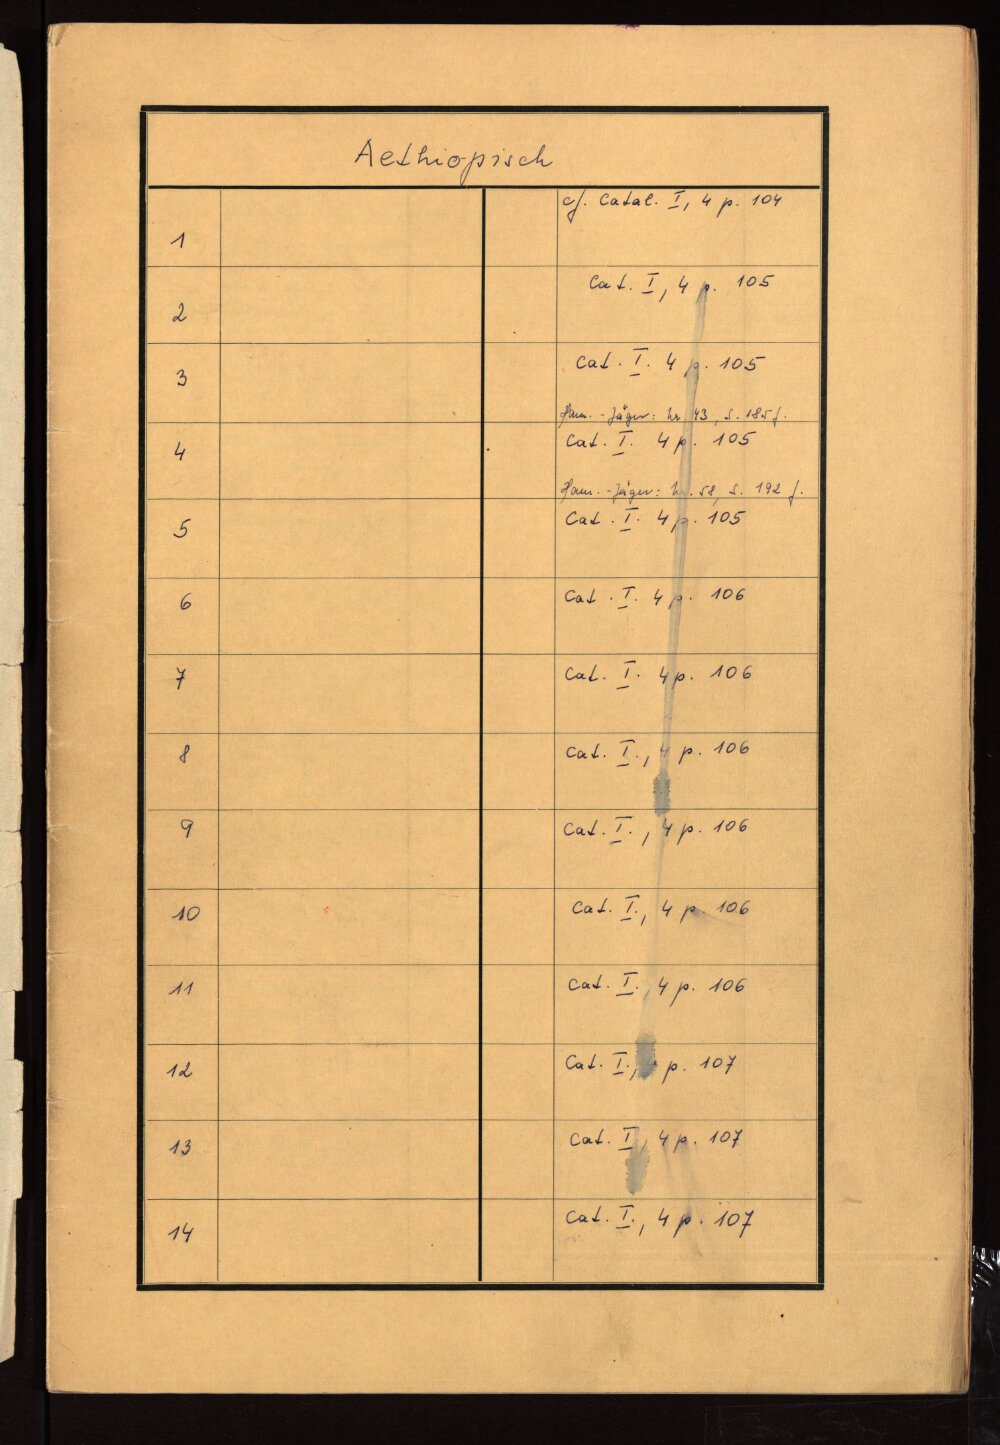 Aethiopisch
1 cf. Catal. I, 4 p. 104
2 Cat. I, 4 p. 105
3 Cat. I. 4 p. 105
Ham.-Jäger: Nr. 43, S. 185f.
4 Cat. I. 4 p. 105
Ham.-Jäger: Nr. 58, S. 192 f.
5 Cat. I. 4 p. 105
6 Cat. I. 4 p. 106
7 Cat. I. 4 p. 106
8 Cat. I., 4 p. 106
9 Cat. I., 4 p. 106
10 Cat. I., 4 p. 106
11 Cat. I., 4 p. 106
12 Cat. I., 4 p. 107
13 Cat. I, 4 p. 107
14 Cat. I., 4 p. 107